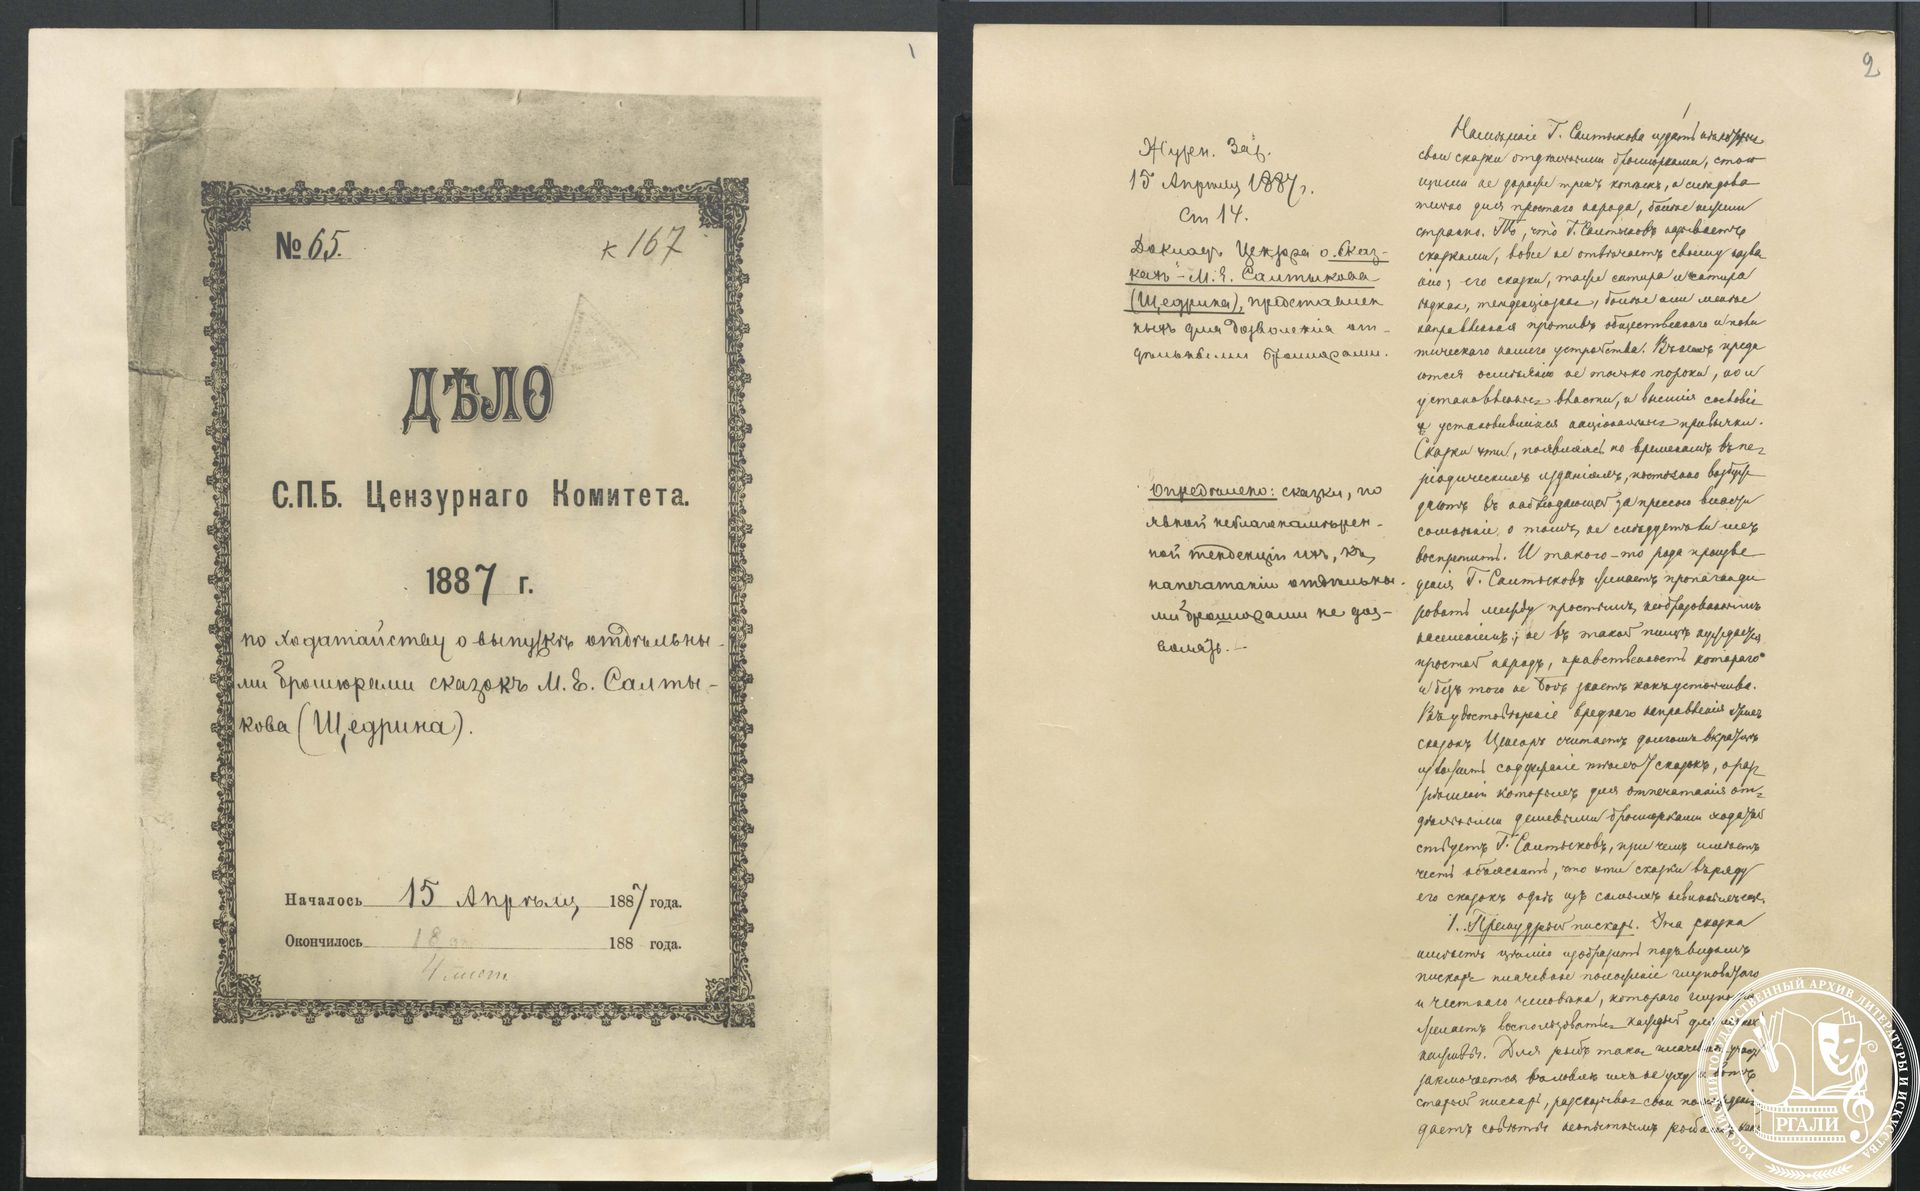 1
№ 65.
к 167
ДѢЛО
С.П.Б. Цензурнаго Комитета.
1887 г.
по ходатайству о выпускѣ отдѣльны-
ми брошюрами сказокъ М. Е. Салты-
кова (Щедрина).
Началось 15 Апрѣля 1887 года.
Окончилось 18 188 года.
4 лист
2
Журн. Зас.
15 Апрѣля 1887 г.
Ст 14.
Докладъ Цензора о „Сказ-
кахъ" М. Е. Салтыкова
(Щедрина), представлен
ныхъ для дозволенія от-
дѣльными брошюрами.
Опредѣлено: сказки, по
явной неблагонамѣрен-
ной тенденціи ихъ, къ
напечатанію отдѣльны-
ми брошюрами не доз-
волять.
1
Намѣреніе Г. Салтыкова издать нѣкоторыя
свои сказки отдѣльными брошюрками, стою
щими не дороже трехъ копѣекъ, а слѣдова
тельно для простаго народа, болѣе нежели
странно. То, что Г. Салтыковъ называетъ
сказками, вовсе не отвѣчаетъ своему назва
нію; его сказки, таже сатира и сатира
ѣдкая, тенденціозная, болѣе или менѣе
направленная противъ общественнаго и поли
тическаго нашего устройства. Въ нихъ преда
ются осмѣянію не только пороки, но и
установленныя власти, и высшія сословія
и установившіяся національныя привычки.
Сказки эти, появляясь по временамъ въ пе-
ріодическихъ изданіяхъ, постоянно возбуж
даютъ въ наблюдающей за прессою власти
сомнѣніе о томъ, не слѣдуетъ ли ихъ
воспретить. И такого-то рода произве
денія Г. Салтыковъ желаетъ пропаганди
ровать между простымъ, необразованнымъ
населеніемъ; не въ такой пищѣ нуждается
простой народъ, нравственность котораго
и безъ того не Богъ знаетъ какъ устойчива.
Въ удостовѣреніе вреднаго направленія этихъ
сказокъ Цензоръ считаетъ долгомъ вкратцѣ
изложить содержаніе сказокъ, о раз-
рѣшеніи которыхъ для отпечатанія от-
дѣльными дешевыми брошюрками ходатай
ствуетъ Г. Салтыковъ, при чемъ имѣетъ
честь объяснить, что эти сказки въ ряду
его сказокъ однѣ изъ самыхъ невинныхъ.
1. Премудрый пискарь. Эта сказка
имѣетъ цѣлію изобразить подъ видомъ
пискаря плачевное положеніе глуповатаго
и честнаго человѣка, котораго глупостью
желаетъ воспользоваться каждый для своей
наживы. Для рыбъ такая плачевная участь
заключается въ ловлѣ ихъ на уду и вотъ
старый пискарь, разсказывая свои похожденія
даетъ совѣты неопытнымъ рыбамъ как
РОССИЙСКИЙ ГОСУДАРСТВЕННЫЙ АРХИВ ЛИТЕРАТУРЫ И ИСКУССТВА
РГАЛИ